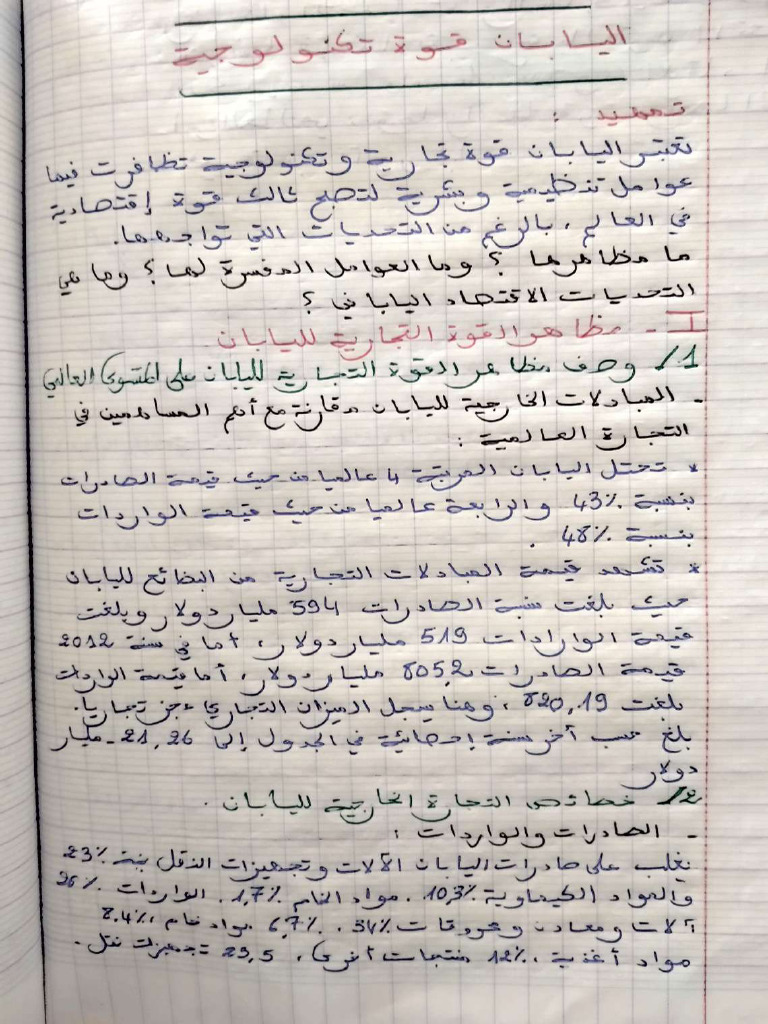 اليابان قوة تكنولوجية
تمهيد :
تعتبر اليابان قوة تجارية وتكنولوجية تظافرت فيها
عوامل تنظيمية وبشرية لتصبح ثالث قوة إقتصادية
في العالم ، بالرغم من التحديات التي تواجهها.
ما مظاهرها ؟ وما العوامل المفسرة لها ؟ وما هي
التحديات الاقتصاد الياباني ؟
I - مظاهر القوة التجارية لليابان
1/ وصف مظاهر القوة التجارية لليابان على المستوى العالمي
- المبادلات الخارجية لليابان مقارنة مع أهم المساهمين في
التجارة العالمية :
* تحتل اليابان المرتبة 4 عالميا من حيث قيمة الصادرات
بنسبة 43% والرابعة عالميا من حيث قيمة الواردات
بنسبة 48% .
* تشهد قيمة المبادلات التجارية من البضائع لليابان
حيث بلغت نسبة الصادرات 594 مليار دولار وبلغت
قيمة الواردات 519 مليار دولار، أما في سنة 2012
قيمة الصادرات 805,2 مليار دولار، أما قيمة الواردات
بلغت 820,19 ، وهنا يسجل الميزان التجاري عجز تجاريا.
بلغ حسب أخر سنة إحصائية في الجدول إلى 21,26- مليار
دولار
2/ خصائص التجارة الخارجية لليابان .
- الصادرات والواردات :
يغلب على صادرات اليابان الآلات وتجهيزات النقل بنسبة 23%
والمواد الكيماوية 10,3% . مواد الخام 1,7% . الواردات 26%
آلات ومعادن ومحروقات 34% . 6,7% مواد خام ، 8,4%
مواد أغذية ، 12% منتجات أخرى ، 23,5 تجهيزات نقل .